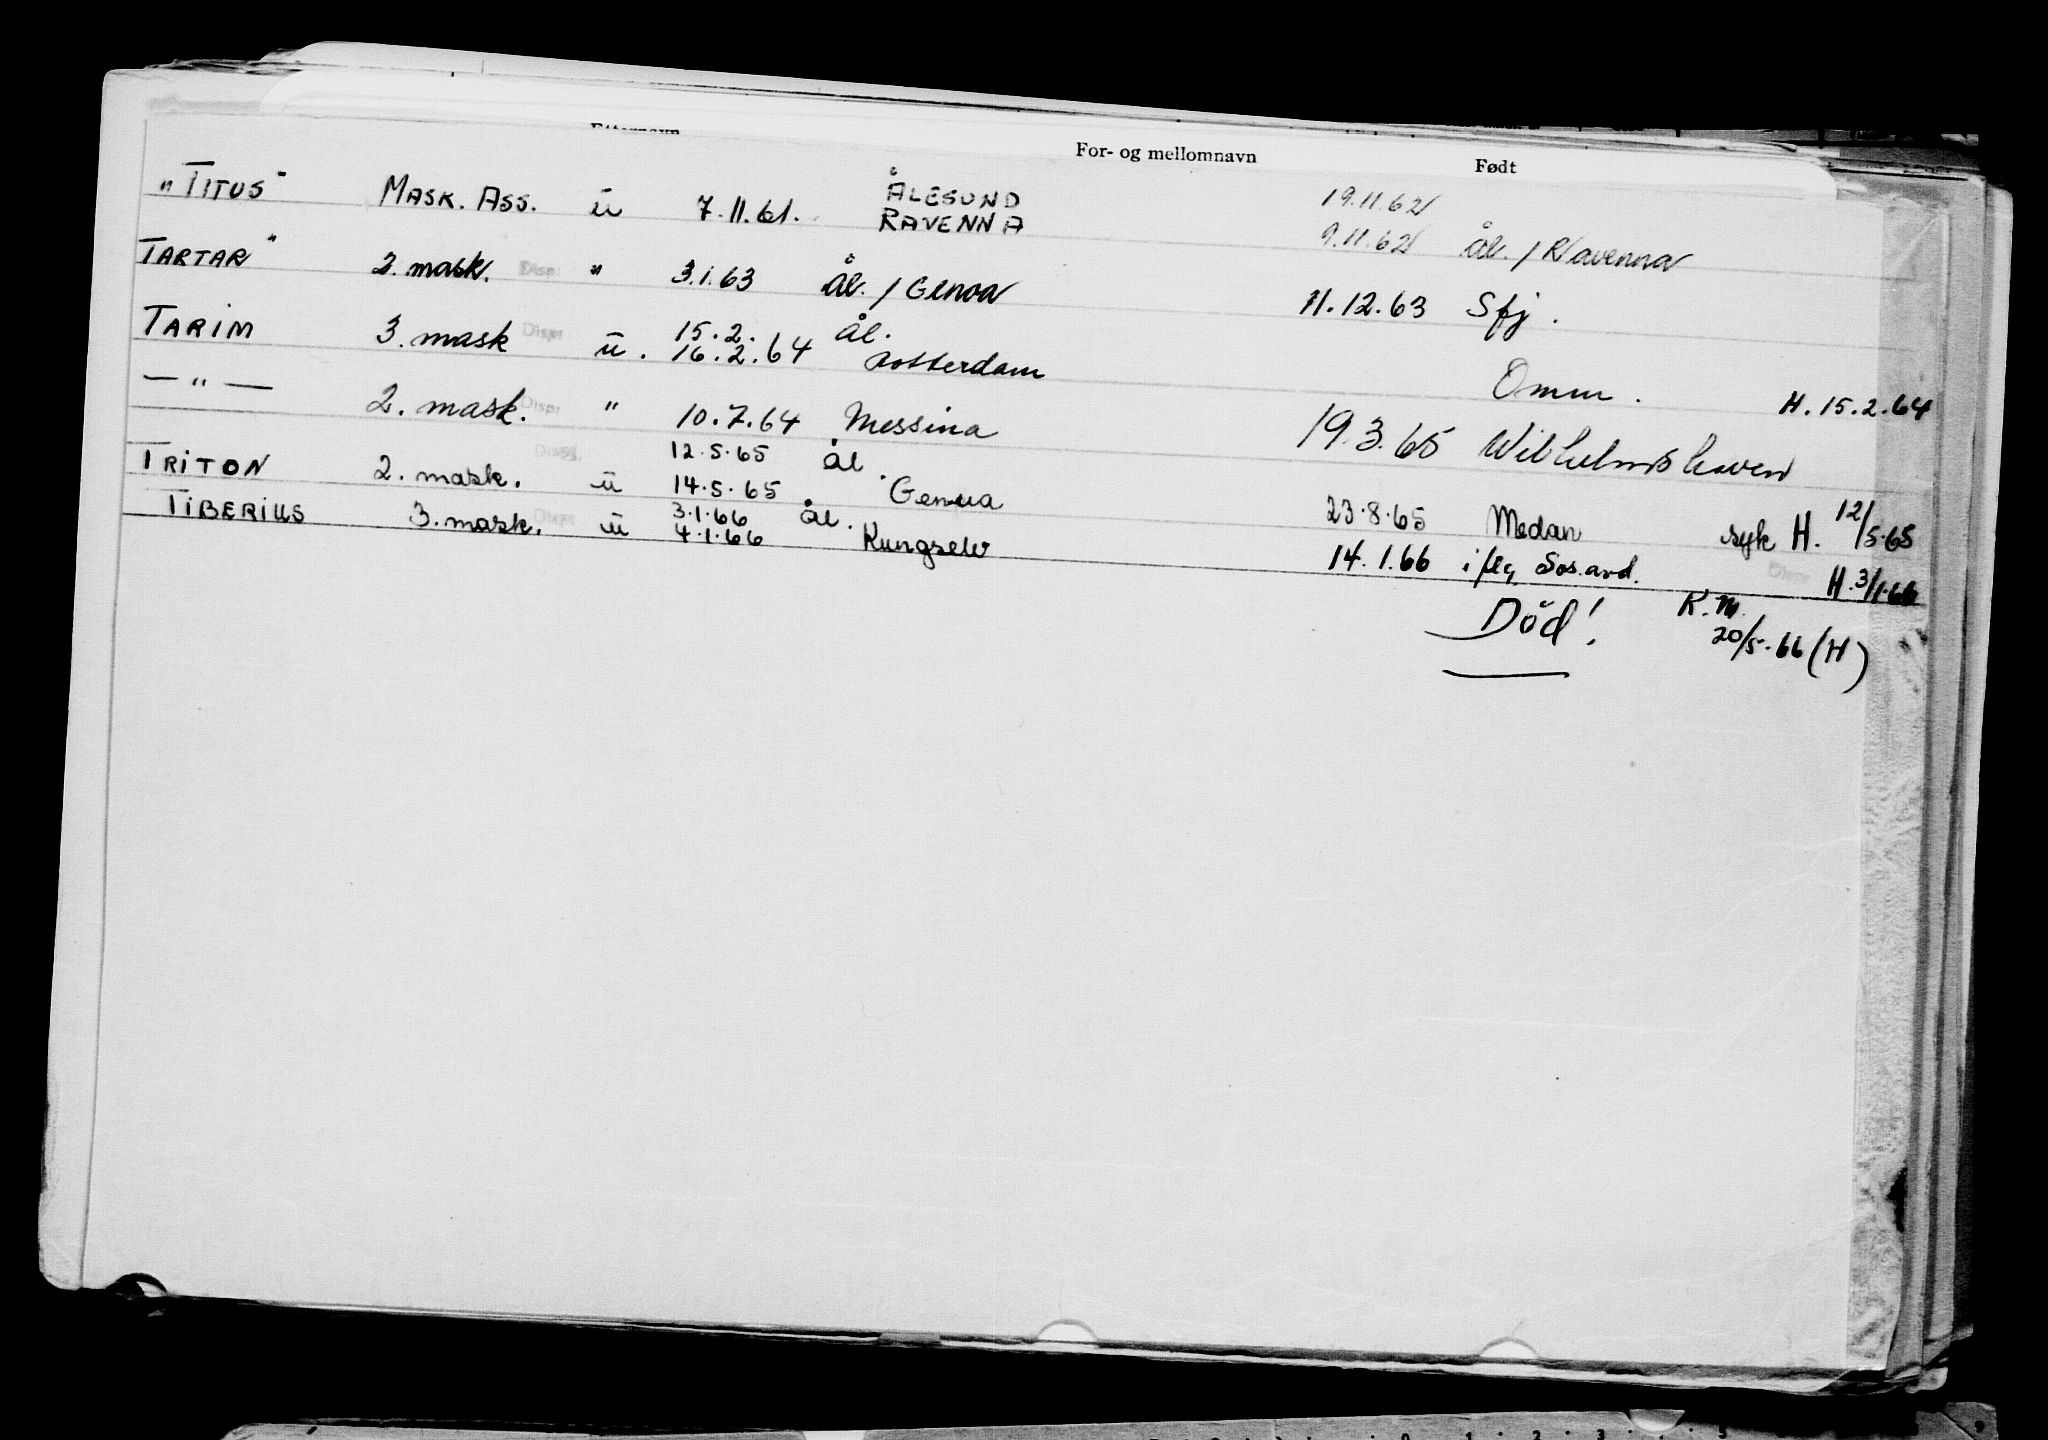 Etternavn For- og mellomnavn Født
"TITUS" MASK. ASS. ū 7.11.61. ÅLESUND 19.11.62
RAVENNA 9.11.62 Ål. / Ravenna
TARTAR" 2. mask. Disp. " 3.1.63 Ål. / Genoa 11.12.63 Sfj.
TARIM 3. mask Disp. ū. 15.2. Ål.
16.2.64 Rotterdam Omm. H. 15.2.64
— " — 2. mask. Disp. " 10.7.64 Messina 19.3.65 Wilhelmshaven
TRITON 2. mask. Disp. ū 12.5.65 Ål
14.5.65 Genua 23.8.65 Medan syk H. 12/5.65
TIBERIUS 3. mask. Disp. ū 3.1.66 Ål.
4.1.66 Kungselv 14.1.66 i flg. Sos. avd. Disp. H. 3/1.66
Död! K.M.
20/5.66 (H)